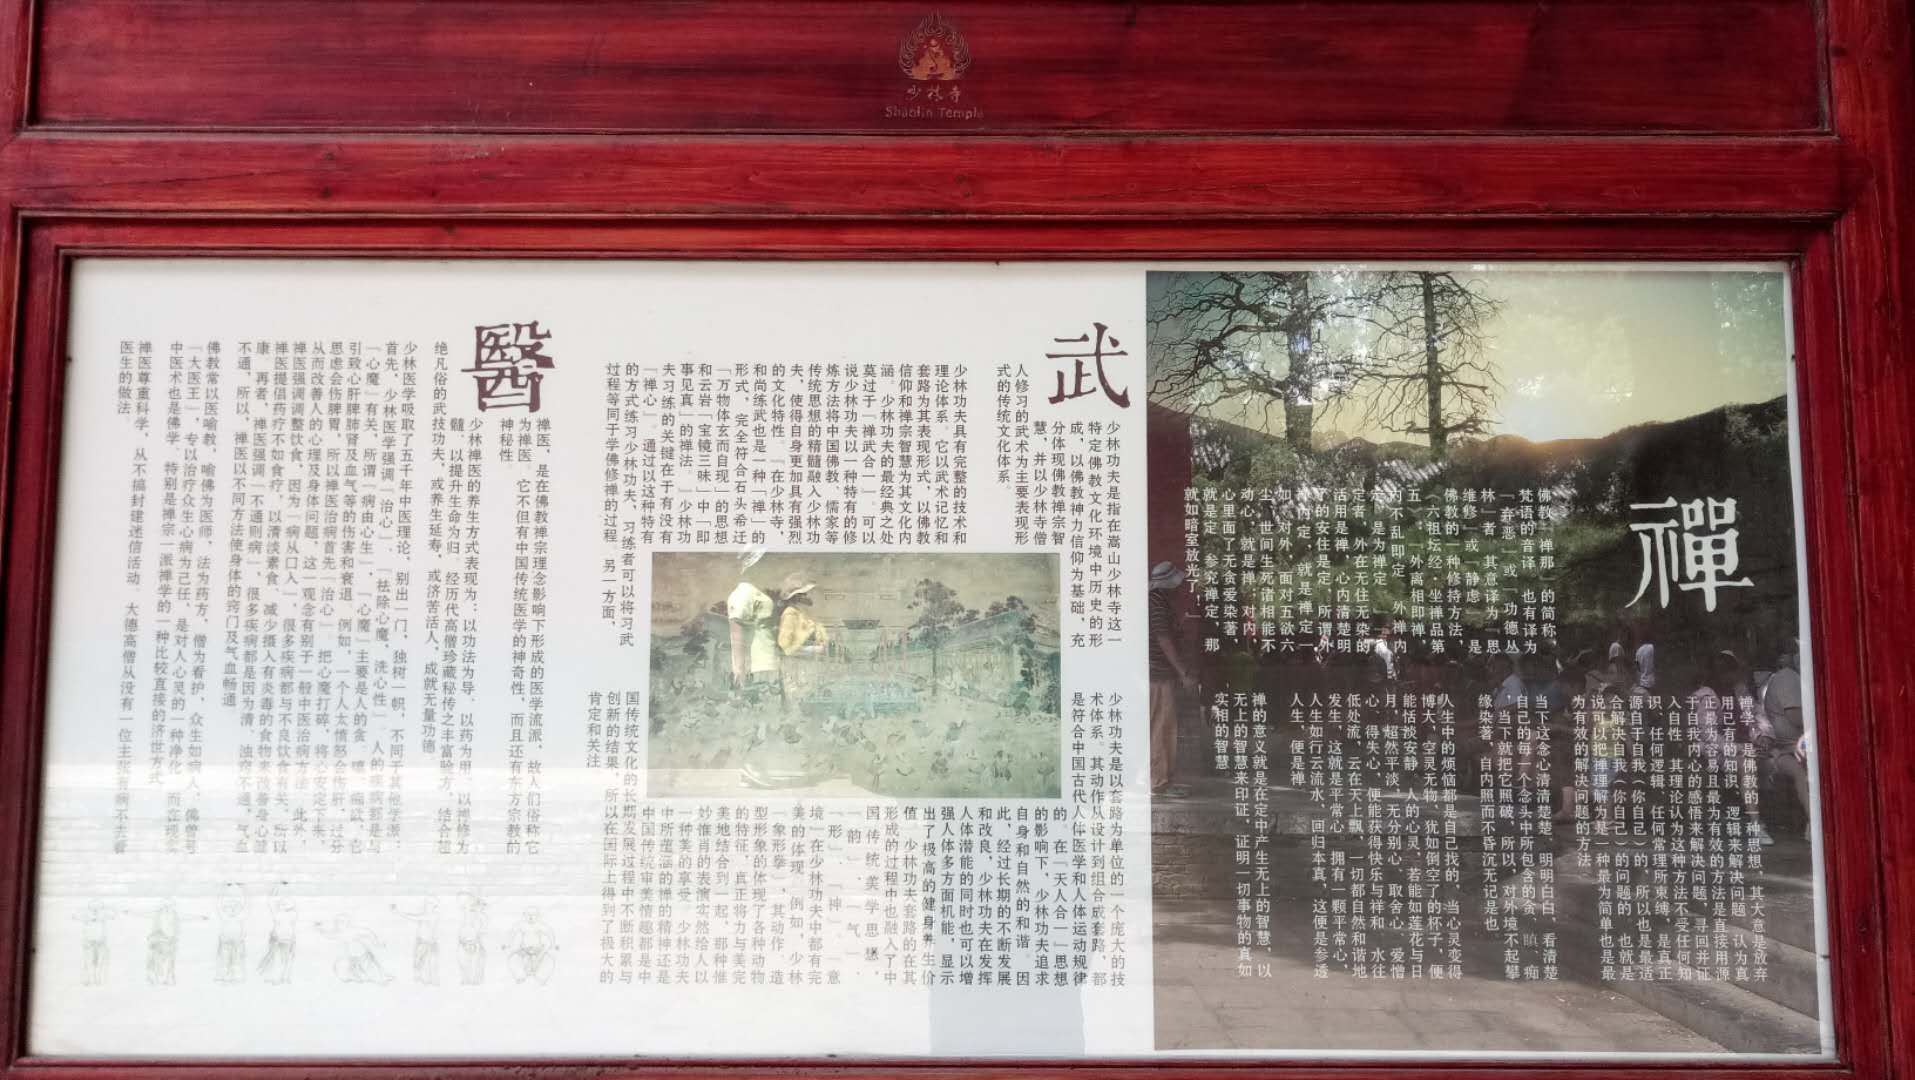 少林寺
Shaolin Temple
禪
佛教「禅那」的简称，
梵语的音译，也有译为
「弃恶」或「功德丛
林」者，其意译为「思
维修」或「静虑」，是
佛教的一种修持方法，
（六祖坛经·坐禅品第
五）。外离相即禅，
内不乱即定，外禅内
定，是为禅定。
定者，外在无住无染的
活用是禅，心内清楚明
了的安住是定，所谓外
禅内定，就是禅定一
如。对外，面对五欲六
尘、世间生死诸相能不
动心，就是禅；对内，
心里面了无贪爱染著，
就是定。参究禅定，那
就如暗室放光了！
禅学，是佛教的一种思想，其大意是放弃
用已有的知识、逻辑来解决问题，认为真
正最为容易且最为有效的方法是直接用源
于自我内心的感悟来解决问题，寻回并证
入自性，其理论认为这种方法不受任何知
识、任何逻辑、任何常理所束缚，是真正
源自于自我（你自己）的，所以也是最适
合解决自我（你自己）的问题的，也就是
说可以把禅理解为是一种最为简单也是最
为有效的解决问题的方法。
当下这念心清清楚楚、明明白白，看清楚
自己的每一个念头中所包含的贪、瞋、痴
，当下就把它照破，所以，对外境不起攀
缘染著，自内照而不昏沉无记是也。
人生中的烦恼都是自己找的，当心灵变得
博大，空灵无物，犹如倒空了的杯子，便
能恬淡安静。人的心灵，若能如莲花与日
月，超然平淡，无分别心、取舍心、爱憎
心、得失心，便能获得快乐与祥和，水往
低处流，云在天上飘，一切都自然和谐地
发生，这就是平常心，拥有一颗平常心，
人生如行云流水，回归本真，这便是参透
人生，便是禅。
禅的意义就是在定中产生无上的智慧，以
无上的智慧来印证，证明一切事物的真如
实相的智慧。
武
少林功夫是指在嵩山少林寺这一
特定佛教文化环境中历史的形
成，以佛教神力信仰为基础，充
分体现佛教禅宗智
慧，并以少林寺僧
人修习的武术为主要表现形
式的传统文化体系。
少林功夫具有完整的技术和
理论体系。它以武术记忆和
套路为其表现形式，以佛教
信仰和禅宗智慧为其文化内
涵。少林功夫的最经典之处
莫过于「禅武合一」。可以
说少林功夫以一种特有的修
炼方法将中国佛教、儒家等
传统思想的精髓融入少林功
夫，使得自身更加具有强烈
的文化特性。「在少林寺，
和尚练武也是一种「禅」的
形式，完全符合石头希迁
「万物体玄而自现」的思想
和云岩「宝镜三昧」中「即
事见真」的禅法。」少林功
夫习练的关键在于有没有
「禅心」。通过以这种特有
的方式练习少林功夫，习练者可以将习武
过程等同于学佛修禅的过程。另一方面，
少林功夫是以套路为单位的一个庞大的技
术体系。其动作从设计到组合成套路，都
是符合中国古代人体医学和人体运动规律
的。在「天人合一」思想
的影响下，少林功夫追求
自身和自然的和谐。因
此，经过长期的不断发展
和改良，少林功夫在发挥
人体潜能的同时也可以增
强人体多方面机能，显示
出了极高的健身养生价
值。少林功夫套路的在其
形成的过程中也融入了中
国传统美学思想，
「韵」、「气」、
「形」、「神」、「意
境」在少林功夫中都有完
美的体现。例如，少林
「象形拳」，其动作、造
型形象的体现了各种动物
的特征，真正将力与美完
美地结合到一起，那种惟
妙惟肖的表演实然给人以
一种美的享受。少林功夫
中所蕴涵的禅的精神还是
中国传统审美情趣都是中
国传统文化的长期发展过程中不断积累与
创新的结果，所以在国际上得到了极大的
肯定和关注。
醫
禅医，是在佛教禅宗理念影响下形成的医学流派，故人们俗称它
为禅医。它不但有中国传统医学的神奇性，而且还有东方宗教的
神秘性。
少林禅医的养生方式表现为：以功法为导，以药为用，以禅修为
髓，以提升生命为归。经历代高僧珍藏秘传之丰富验方，结合超
绝凡俗的武技功夫，或养生延寿，或济苦活人，成就无量功德。
少林医学吸取了五千年中医理论，别出一门，独树一帜，不同于其他学派：
首先，少林医学强调「治心」、「祛除心魔，洗心性」。人的疾病都是与
「心魔」有关，所谓「病由心生」，「心魔」主要是人的贪、嗔、痴欲，它
引致心肝脾肺肾及血气等的伤害和衰退。例如，一个人太愤怒会伤肝，过分
思虑会伤脾胃，所以禅医治病首先「治心」。把心魔打碎，将心安定下来，
从而改善人的心理及身体问题，这一观念有别于一般中医治病方法。此外，
禅医强调调整饮食，因为「病从口入」，很多疾病都与不良饮食有关，所以
禅医提倡药疗不如食疗，以清淡素食，减少摄入有炎毒的食物来改善身心健
康。再者，禅医强调「不通则病」，很多疾病都是因为清、浊空不通，气血
不通，所以，禅医以不同方法使身体的窍门及气血畅通。
佛教常以医喻教，喻佛为医师，法为药方，僧为看护，众生如病人，佛曾号
「大医王」，专以治疗众生心病为己任，是对人心灵的一种净化，而在现实
中医术也是佛学，特别是禅宗一派禅学的一种比较直接的济世方式。
禅医尊重科学，从不搞封建迷信活动，大德高僧从没有一位主张有病不去看
医生的做法。